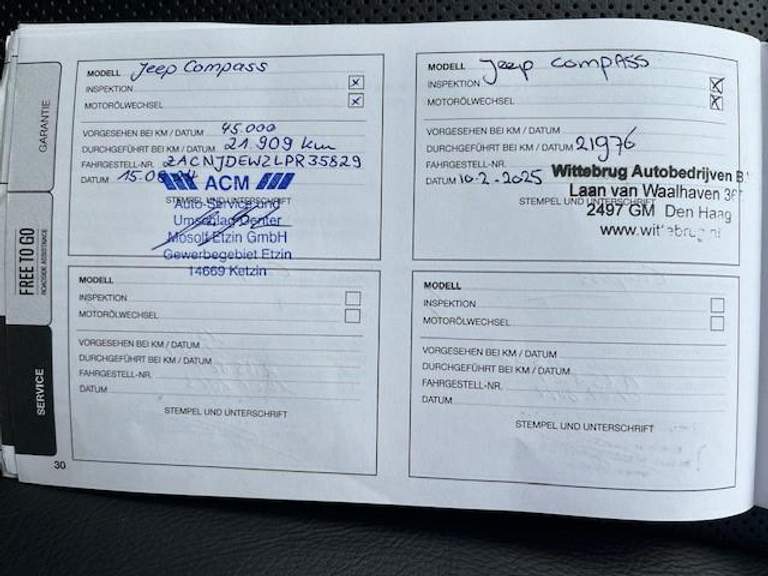 GARANTIE
FREE TO GO
ROADSIDE ASSISTANCE
SERVICE
MODELL Jeep Compass
INSPEKTION x
MOTORÖLWECHSEL x
VORGESEHEN BEI KM / DATUM 45.000
DURCHGEFÜHRT BEI KM / DATUM 21.909 km
FAHRGESTELL-NR. ZACNJDEW2LPR35829
DATUM 15.0
ACM
STEMPEL UND UNTERSCHRIFT
Auto-Service und
Umschlag Center
Mosolf Etzin GmbH
Gewerbegebiet Etzin
14669 Ketzin
MODELL Jeep Compass
INSPEKTION x
MOTORÖLWECHSEL x
VORGESEHEN BEI KM / DATUM
DURCHGEFÜHRT BEI KM / DATUM 21976
FAHRGESTELL-NR.
DATUM 10-2-2025
STEMPEL UND UNTERSCHRIFT
Wittebrug Autobedrijven
Laan van Waalhaven
2497 GM Den Haag
www.wittebrug.nl
MODELL
INSPEKTION
MOTORÖLWECHSEL
VORGESEHEN BEI KM / DATUM
DURCHGEFÜHRT BEI KM / DATUM
FAHRGESTELL-NR.
DATUM
STEMPEL UND UNTERSCHRIFT
MODELL
INSPEKTION
MOTORÖLWECHSEL
VORGESEHEN BEI KM / DATUM
DURCHGEFÜHRT BEI KM / DATUM
FAHRGESTELL-NR.
DATUM
STEMPEL UND UNTERSCHRIFT
30